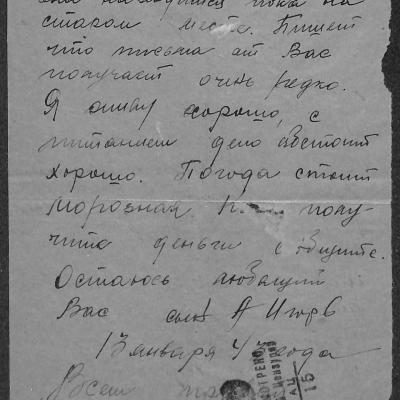 находится пока на
старом месте. Пишет
что письма от Вас
получает очень редко.
Я живу хорошо, с
питанием дело обстоит
хорошо. Погода стоит
морозная. полу-
чите деньги сообщите.
Остаюсь любящий
Вас сын А Игорь
13 января 4 года
Всем
15